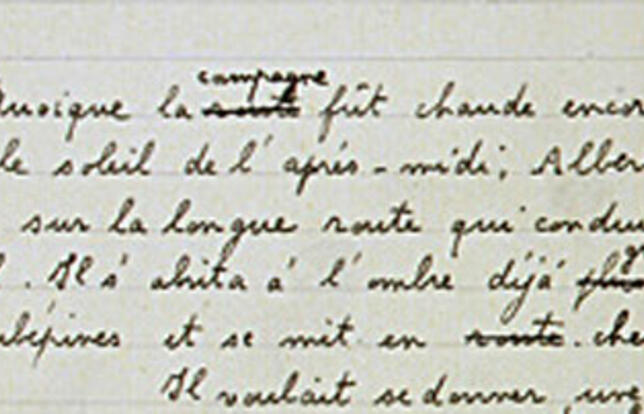 campagne
la route fût chaude
le soleil de l'après-midi; Alber
sur la longue route qui condui
Il s'abrita à l'ombre déjà
et se mit en route. che
Il voulait se donner une